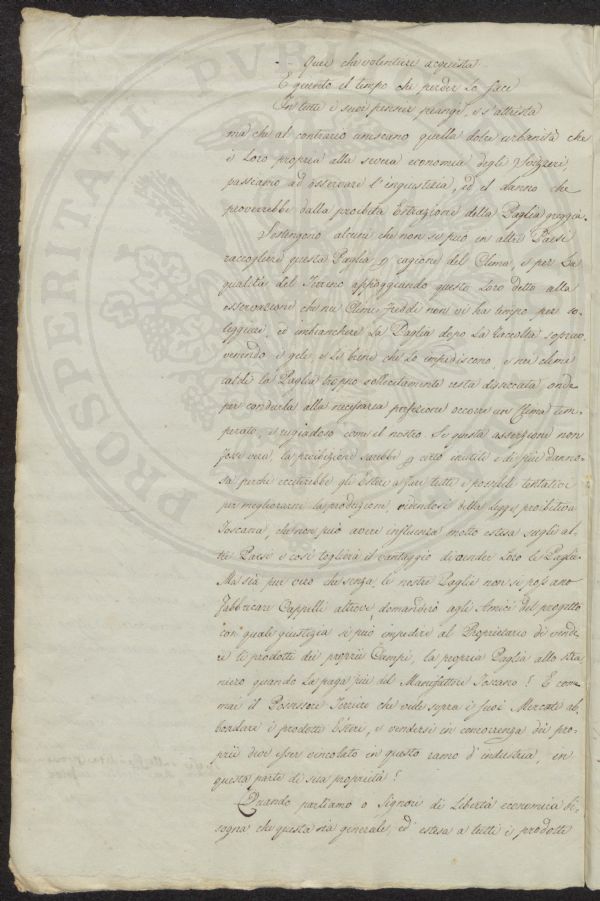 Quei che volentieri acquista
E quando il tempo che perder lo face
In tutti i suoi pensier piange, e s'attrista
ma che al contrario uniscano quella dolce urbanità che
è Loro propria alla severa economia degli Svizzeri
passiamo ad osservare l'ingiustizia, ed il danno che
proverrebbe dalla proibita Estrazione della Paglia greggia.
Sostengono alcuni che non si può in altri Paesi
raccogliere questa Paglia p cagione del Clima, e per la
qualità del Terreno appoggiando questo Loro detto alla
osservazione che nei Climi freddi non vi ha tempo per so-
leggiare, ed imbiancare La Paglia dopo La raccolta soprav-
venendo i geli, e Le brine che Lo impediscono, e nei climi
caldi la Paglia troppo sollecitamente resta disseccata, onde
per condurla alla necessaria perfezione occorre un Clima tem-
perato, e rugiadoso come il nostro. Se questa asserzione non
fosse vera, la proibizione sarebbe p certo inutile e di più danno-
sa perchè ecciterebbe gli Esteri a fare tutti i possibili tentativi
per migliorarne la produzione, vedendosi della legge proibitiva
Toscana, che non può avere influenza molto estesa sugli al-
tri Paesi e così toglierà il vantaggio di vender Loro le Paglie.
Ma sia pur vero che senza le nostre Paglie non si possano
fabbricare Cappelli altrove, domanderò agli Amici del progetto
con quale giustizia si può impedire al Proprietario di vende-
re i prodotti dei proprii Campi, la propria Paglia allo stra-
niero quando La paga più del Manufattore Toscano? E come
mai il Possessore Terriero che vede sopra i suoi Mercati ab-
bondare i prodotti Esteri, e vendersi in concorrenza dei pro-
prii deve esser vincolato in questo ramo d'industria, in
questa parte di sua proprietà?
Quando parliamo o Signori di Libertà economica bi-
sogna che questa sia generale, ed estesa a tutti i prodotti
PROSPERITATI PVBLICAE